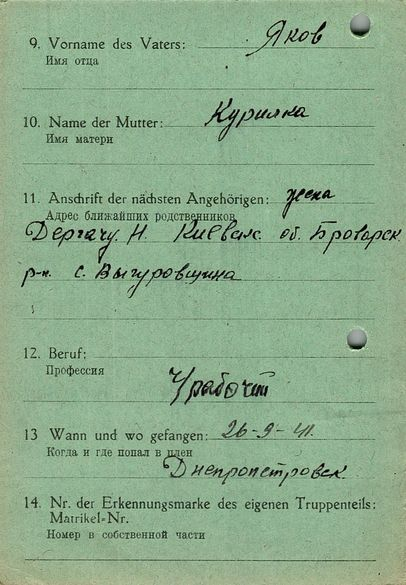 9. Vorname des Vaters: Яков
Имя отца
10. Name der Mutter: Курилка
Имя матери
11. Anschrift der nächsten Angehörigen: жена
Адрес ближайших родственников
Дергачу Н. Киевск. об. Броварск
р-н. с. Выгуровщина
12. Beruf:
Профессия
рабочий
13 Wann und wo gefangen: 26-9-41.
Когда и где попал в плен
Днепропетровск
14. Nr. der Erkennungsmarke des eigenen Truppenteils:
Matrikel-Nr.
Номер в собственной части